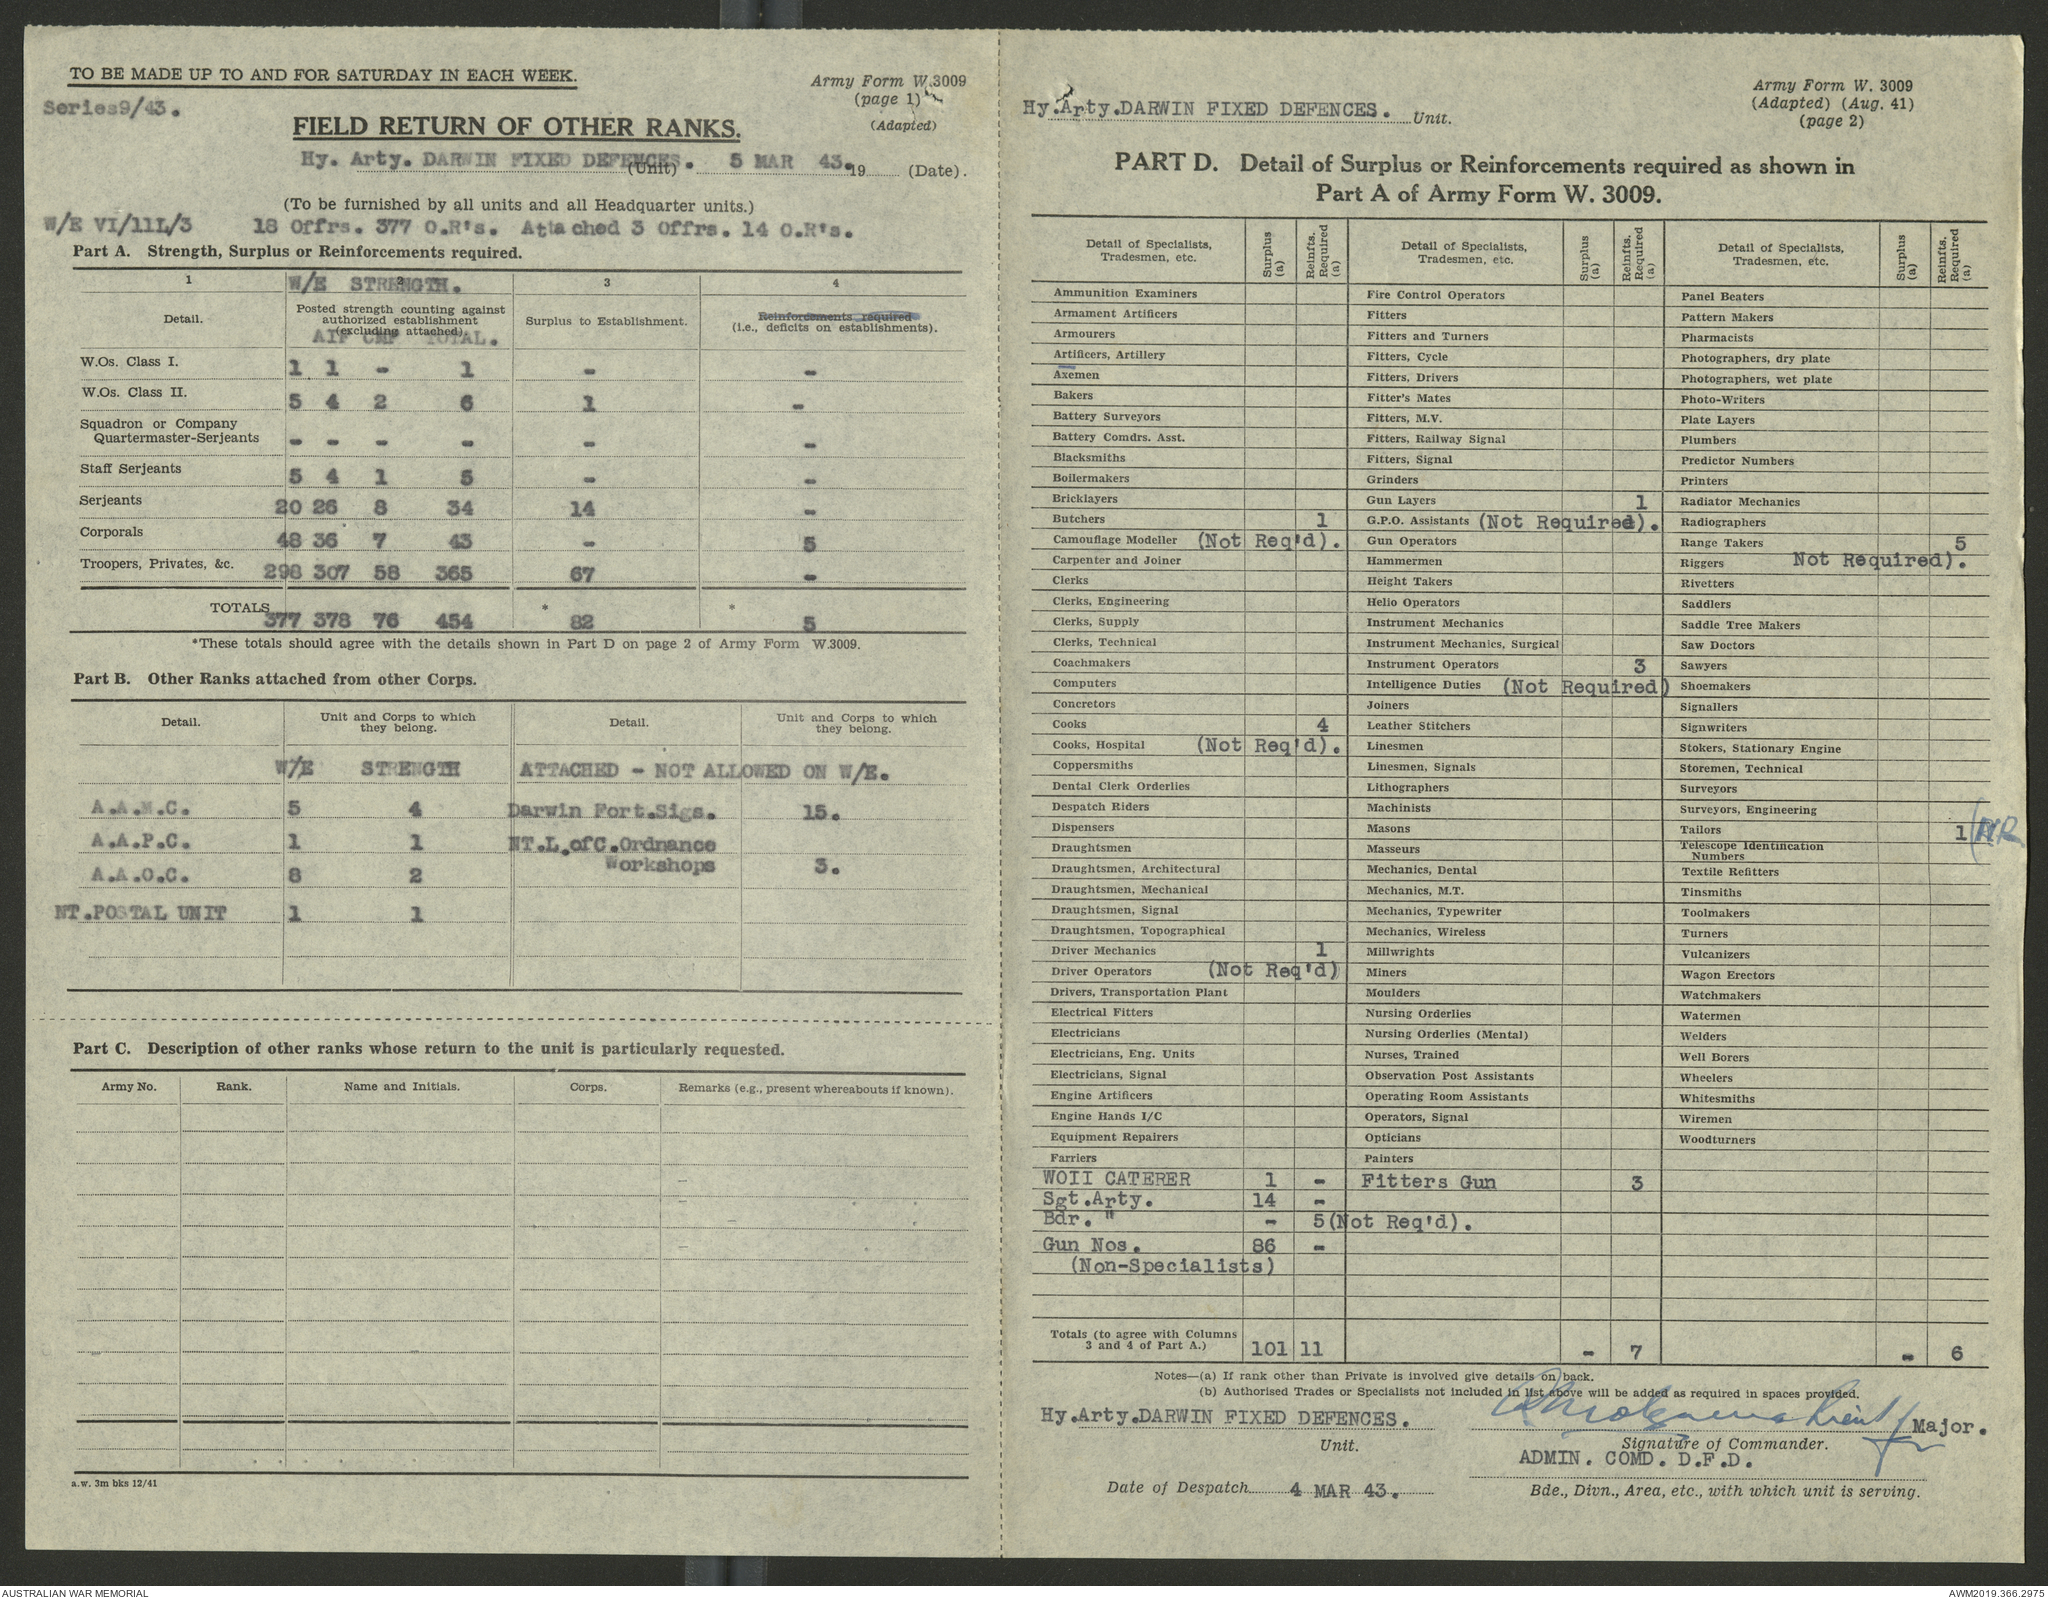 TO BE MADE UP TO AND FOR SATURDAY IN EACH WEEK.
Army Form W.3009
(page 1)
(Adapted)
Series9/43.
FIELD RETURN OF OTHER RANKS.
Hy. Arty. DARWIN FIXED DEFENCES. (Unit) 5 MAR 43. 19 (Date).
(To be furnished by all units and all Headquarter units.)
W/E VI/11L/3 18 Offrs. 377 O.R's. Attached 3 Offrs. 14 O.R's.
Part A. Strength, Surplus or Reinforcements required.
1 2 3 4
W/E STRENGTH.
Detail. Posted strength counting against authorized establishment (excluding attached). Surplus to Establishment. Reinforcements required (i.e., deficits on establishments).
AIF CMF TOTAL.
W.Os. Class I. 1 1 - 1 - -
W.Os. Class II. 5 4 2 6 1 -
Squadron or Company
Quartermaster-Serjeants - - - - - -
Staff Serjeants 5 4 1 5 - -
Serjeants 20 26 8 34 14 -
Corporals 48 36 7 43 - 5
Troopers, Privates, &c. 298 307 58 365 67 -
TOTALS 377 378 76 454 * 82 * 5
*These totals should agree with the details shown in Part D on page 2 of Army Form W.3009.
Part B. Other Ranks attached from other Corps.
Detail. Unit and Corps to which they belong. Detail. Unit and Corps to which they belong.
W/E STRENGTH ATTACHED - NOT ALLOWED ON W/E.
A.A.M.C. 5 4 Darwin Fort.Sigs. 15.
A.A.P.C. 1 1 NT.L.ofC.Ordnance
Workshops 3.
A.A.O.C. 8 2
NT.POSTAL UNIT 1 1
Part C. Description of other ranks whose return to the unit is particularly requested.
Army No. Rank. Name and Initials. Corps. Remarks (e.g., present whereabouts if known).
a.w. 3m bks 12/41
Hy.Arty.DARWIN FIXED DEFENCES. Unit.
Army Form W. 3009
(Adapted) (Aug. 41)
(page 2)
PART D. Detail of Surplus or Reinforcements required as shown in
Part A of Army Form W. 3009.
Detail of Specialists, Tradesmen, etc. Surplus (a) Reinfts. Required (a) Detail of Specialists, Tradesmen, etc. Surplus (a) Reinfts. Required (a) Detail of Specialists, Tradesmen, etc. Surplus (a) Reinfts. Required (a)
Ammunition Examiners Fire Control Operators Panel Beaters
Armament Artificers Fitters Pattern Makers
Armourers Fitters and Turners Pharmacists
Artificers, Artillery Fitters, Cycle Photographers, dry plate
Axemen Fitters, Drivers Photographers, wet plate
Bakers Fitter's Mates Photo-Writers
Battery Surveyors Fitters, M.V. Plate Layers
Battery Comdrs. Asst. Fitters, Railway Signal Plumbers
Blacksmiths Fitters, Signal Predictor Numbers
Boilermakers Grinders Printers
Bricklayers Gun Layers 1 Radiator Mechanics
Butchers 1 G.P.O. Assistants (Not Required). Radiographers
Camouflage Modeller (Not Req'd). Gun Operators Range Takers 5
Carpenter and Joiner Hammermen Riggers Not Required).
Clerks Height Takers Rivetters
Clerks, Engineering Helio Operators Saddlers
Clerks, Supply Instrument Mechanics Saddle Tree Makers
Clerks, Technical Instrument Mechanics, Surgical Saw Doctors
Coachmakers Instrument Operators 3 Sawyers
Computers Intelligence Duties (Not Required) Shoemakers
Concretors Joiners Signallers
Cooks 4 Leather Stitchers Signwriters
Cooks, Hospital (Not Req'd). Linesmen Stokers, Stationary Engine
Coppersmiths Linesmen, Signals Storemen, Technical
Dental Clerk Orderlies Lithographers Surveyors
Despatch Riders Machinists Surveyors, Engineering
Dispensers Masons Tailors 1 (NR
Draughtsmen Masseurs Telescope Identification Numbers
Draughtsmen, Architectural Mechanics, Dental Textile Refitters
Draughtsmen, Mechanical Mechanics, M.T. Tinsmiths
Draughtsmen, Signal Mechanics, Typewriter Toolmakers
Draughtsmen, Topographical Mechanics, Wireless Turners
Driver Mechanics 1 Millwrights Vulcanizers
Driver Operators (Not Req'd) Miners Wagon Erectors
Drivers, Transportation Plant Moulders Watchmakers
Electrical Fitters Nursing Orderlies Watermen
Electricians Nursing Orderlies (Mental) Welders
Electricians, Eng. Units Nurses, Trained Well Borers
Electricians, Signal Observation Post Assistants Wheelers
Engine Artificers Operating Room Assistants Whitesmiths
Engine Hands I/C Operators, Signal Wiremen
Equipment Repairers Opticians Woodturners
Farriers Painters
WOII CATERER 1 - Fitters Gun 3
Sgt.Arty. 14 -
Bdr. " - 5(Not Req'd).
Gun Nos. 86 -
(Non-Specialists)
Totals (to agree with Columns 3 and 4 of Part A.) 101 11 - 7 - 6
Notes—(a) If rank other than Private is involved give details on back.
(b) Authorised Trades or Specialists not included in list above will be added as required in spaces provided.
Hy.Arty.DARWIN FIXED DEFENCES. Major.
Unit. Signature of Commander.
ADMIN. COMD. D.F.D.
Date of Despatch 4 MAR 43. Bde., Divn., Area, etc., with which unit is serving.
AUSTRALIAN WAR MEMORIAL AWM2019.366.2975